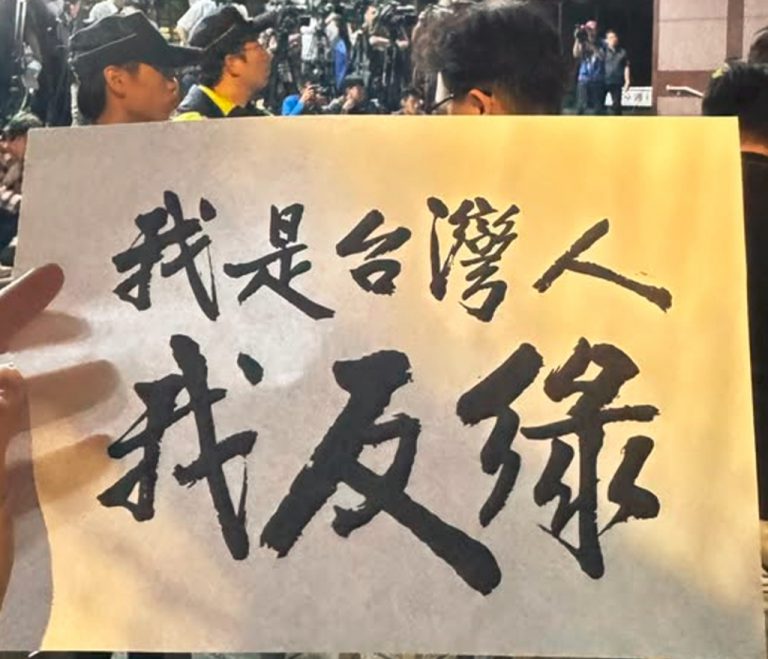 我是台灣人
我反綠